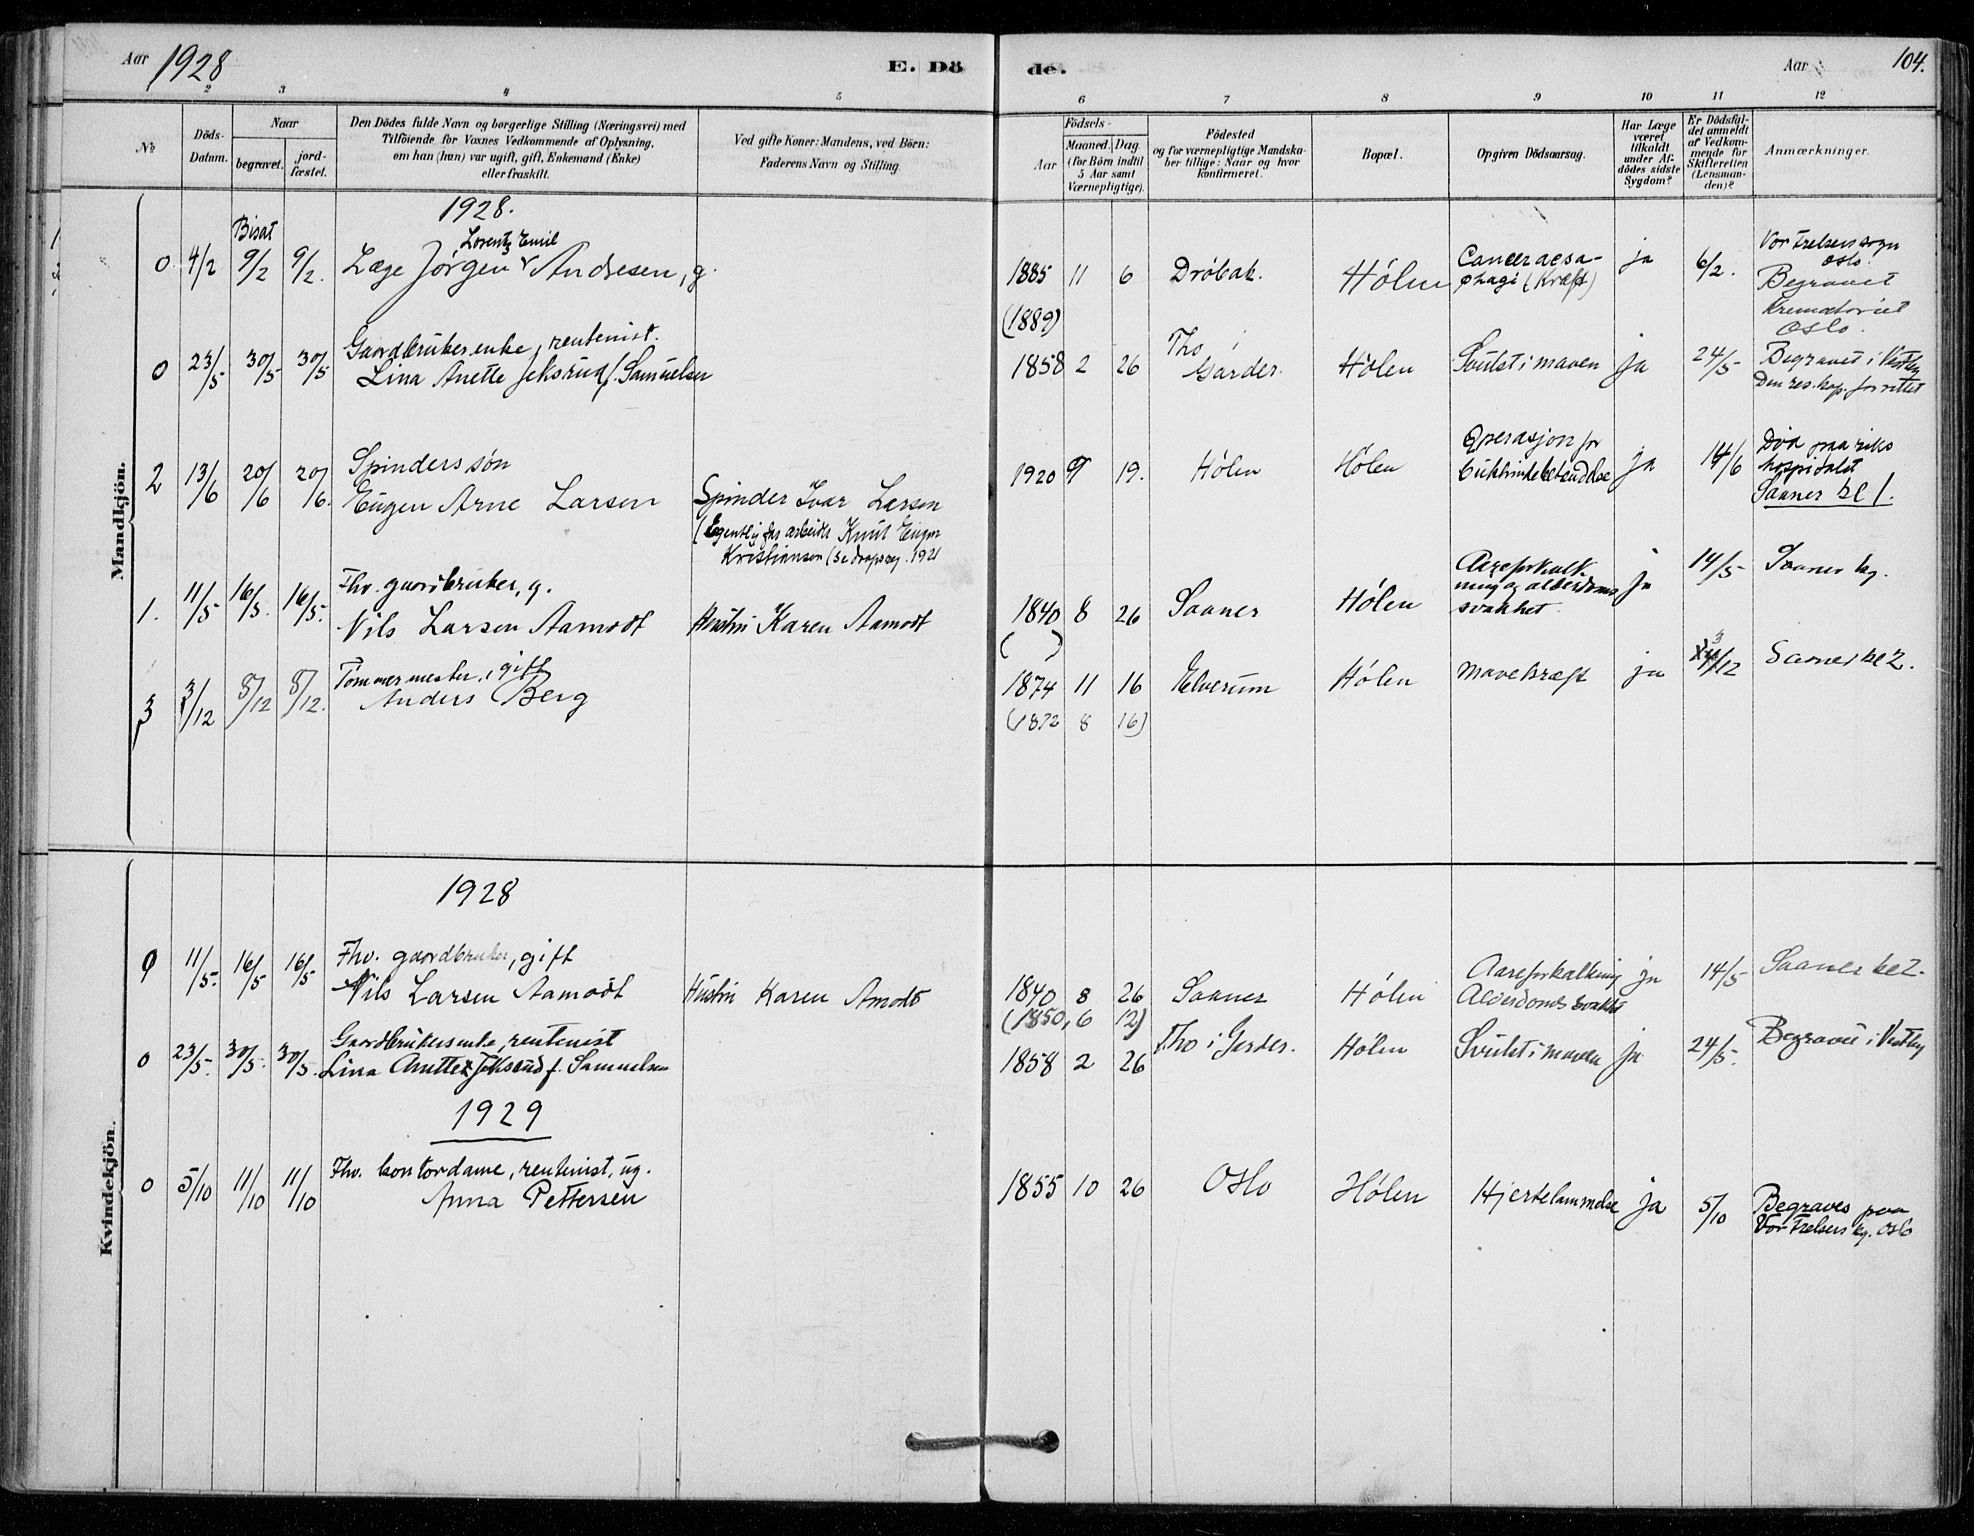 Aar 1928
E. Dö
de.
Aar
104.
2 3 4 5 6 7 8 9 10 11 12
No
Döds-Datum.
Naar
begravet.
jord-fæstet.
Den Dödes fulde Navn og borgerlige Stilling (Næringsvei) med
Tilföiende for Voxnes Vedkommende af Oplysning,
om han (hun) var ugift, gift, Enkemand (Enke)
eller fraskilt.
Ved gifte Koner: Mandens, ved Börn:
Faderens Navn og Stilling.
Födsels-
Aar
Maaned. Dag.
(for Börn indtil
5 Aar samt
Værnepligtige).
Födested
og for værnepligtige Mandska-
ber tillige: Naar og hvor
konfirmeret.
Bopæl.
Opgiven Dödsaarsag.
Har Læge
været
tilkaldt
under Af-
dödes sidste
Sygdom?
Er Dödsfal-
det anmeldt
af Vedkom-
mende for
Skifteretten
(Lensman-
den)?
Anmærkninger.
Mandkjön.
1928.
Bisat
Lorentz Emil
0. 4/2 9/2 9/2. Læge Jörgen Andresen, g.
1885 11 6 Dröbak. Hölen
phagi (Kræft)
ja 6/2.
Vor Frelsers sogn
Oslo.
Begravet
Krematoriet
Oslo.
(1889)
Gaardbrukerenke, rentenist.
0 23/5 30/5 30/5 Lina Anette Jeksrud f. Samuelsen
1858 2 26 Tho i
Garder. Hölen Svulst i maven ja 24/5
Begravet i Vestby
Den res. kap. forrettet
Spinders sön
2 13/6 20/6 20/6. Eugen Arne Larsen
Spinder Ivar Larsen
(Egentlig far arbeider Knut Eugen
Kristiansen (se daapsreg. 1921
1920 9 19. Hölen Hölen
Operasjon for
bukhindebetændelse ja 14/6
Död paa riks
hospitalet
Saaner kl 1.
Fhv. gaardbruker, g.
1. 11/5 16/5. 16/5. Nils Larsen Aamodt Hustru Karen Aamodt
1840 8 26 Saaner Hölen
Aareforkalk
ning og alderdoms
svakhet ja 14/5 Saaner kg.
( )
Tömmermester, gift
3 3/12 8/12 8/12. Anders Berg
1874 11 16 Elverum Hölen Mavekræft ja 3/12 Saaner kl 2.
(1872 8 16)
Kvindekjön.
1928
0 11/5. 16/5 16/5 Fhv. gaardbruker, gift
Nils Larsen Aamodt Hustru Karen Amodt
1840 8 26 Saaner Hölen Aareforkalkning
Alderdoms svakhet ja 14/5 Saaner kl 2.
(1850, 6 12)
Gaardbrukerenke, rentenist
0 23/5. 30/5. 30/5. Lina Anette Jeksrud f. Samuelsen
1858 2 26 Tho i Garder. Hölen Svulst i maven ja 24/5. Begravet i Vestby
1929
Fhv. kontordame, rentenist, ug.
0 5/10 11/10 11/10 Anna Pettersen
1855 10 26 Oslo Hölen Hjertelammelse ja 5/10
Begraves paa
Vor Frelsers kg. Oslo